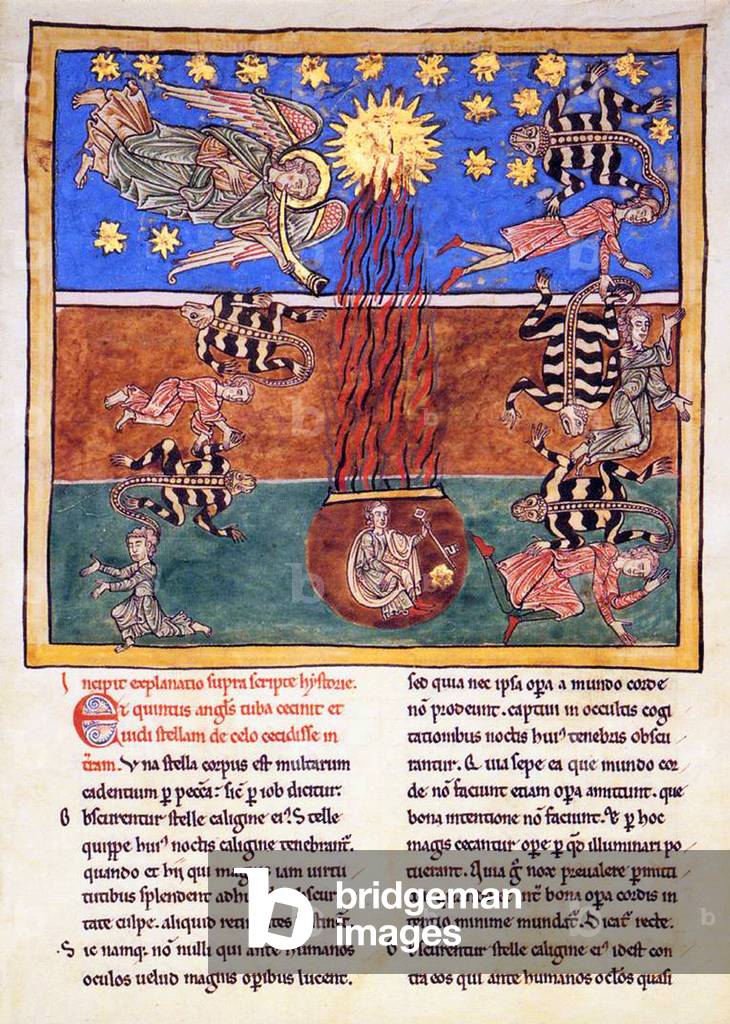 Incipit explanatio supra scripte hystorie.
Et quintus angl's tuba cecinit et
uidi stellam de celo cecidisse in
t'ram. Vna stella corpus est multarum
cadentium p pecca: sic' p iob dicitur.
Obscurentur stelle caligine ei'. Stelle
quippe hui' noctis caligine tenebrant'.
quando et hij qui iam uirtu
tutibus splendent adhuc
tate culpe. aliquid
Sic namq. nō nulli qui ante humanos
oculos uelud magnis opibus lucent.
sed quia nec ipsa opa a mundo corde
nō prodeunt. captiui in occultis cogi
tationibus noctis hui' tenebris obscu
rantur. Quia sepe ea que mundo cor
de nō faciunt etiam opa amittunt. que
bona intentione nō faciunt. Et p hoc
magis cecantur ope p qd illuminari po
tuerant. Quia g nox preualere pmitti
bona opa cordis in
tentio minime mundat. Dicat' recte.
Obscurentur stelle caligine ei' idest con
tra eos qui ante humanos oclos quasi
b bridgeman
images